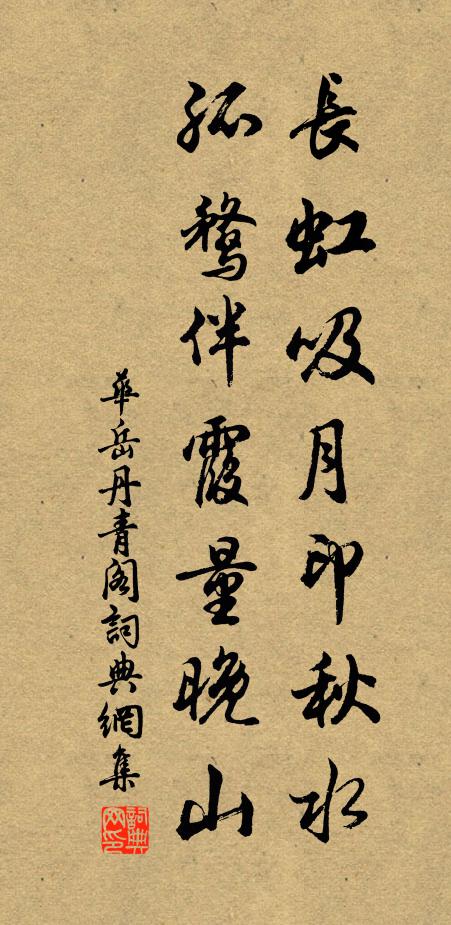 長虹吸月印秋水
孤鶩伴霞量晚山
華岳丹青閣詞典網集
詞典网印